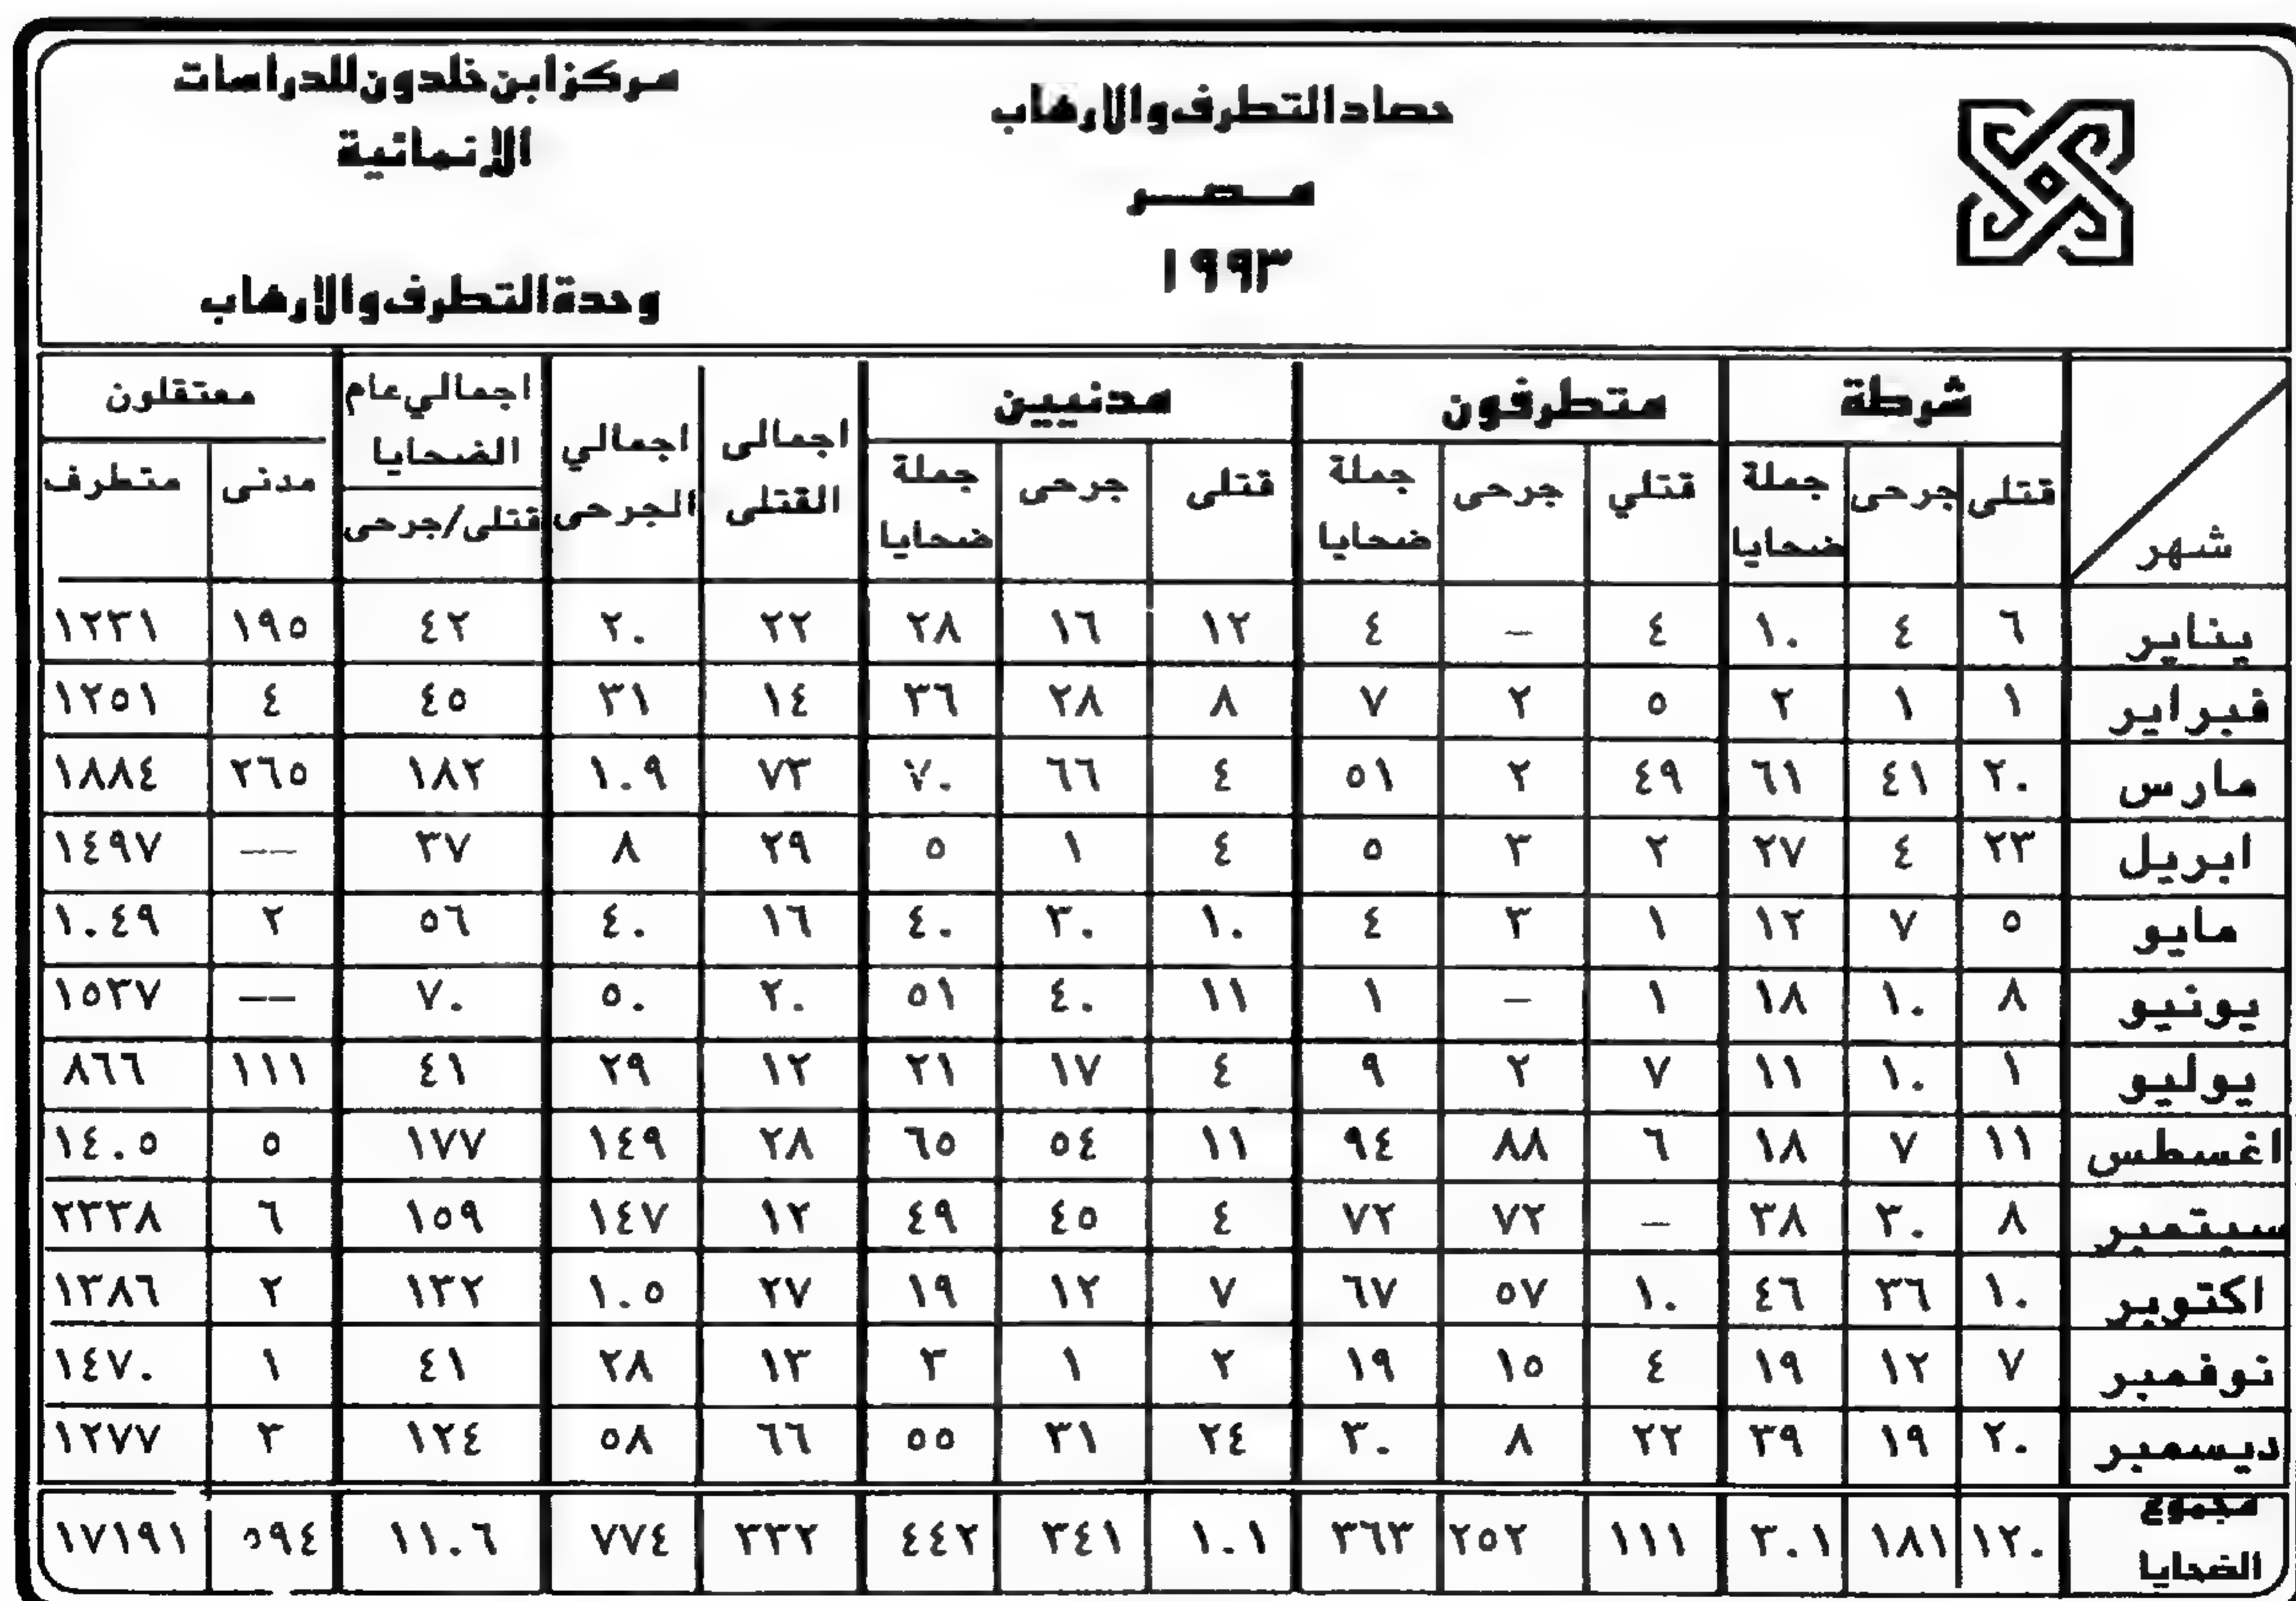 حصاد التطرف والارهاب
مصر
١٩٩٣
مركز ابن خلدون للدراسات
الإنمائية
وحدة التطرف والإرهاب
شهر | شرطة | متطرفون | مدنيين | اجمالى القتلى | اجمالي الجرحى | اجمالي عام الضحايا قتلى/جرحى | معتقلون
قتلى | جرحى | جملة ضحايا | قتلي | جرحى | جملة ضحايا | قتلى | جرحى | جملة ضحايا | مدنى | متطرف
يناير | ٦ | ٤ | ١٠ | ٤ | – | ٤ | ١٢ | ١٦ | ٢٨ | ٢٢ | ٢٠ | ٤٢ | ١٩٥ | ١٢٣١
فبراير | ١ | ١ | ٢ | ٥ | ٢ | ٧ | ٨ | ٢٨ | ٣٦ | ١٤ | ٣١ | ٤٥ | ٤ | ١٢٥١
مارس | ٢٠ | ٤١ | ٦١ | ٤٩ | ٢ | ٥١ | ٤ | ٦٦ | ٧٠ | ٧٣ | ١٠٩ | ١٨٢ | ٢٦٥ | ١٨٨٤
ابريل | ٢٣ | ٤ | ٢٧ | ٢ | ٣ | ٥ | ٤ | ١ | ٥ | ٢٩ | ٨ | ٣٧ | –– | ١٤٩٧
مايو | ٥ | ٧ | ١٢ | ١ | ٣ | ٤ | ١٠ | ٣٠ | ٤٠ | ١٦ | ٤٠ | ٥٦ | ٢ | ١٠٤٩
يونيو | ٨ | ١٠ | ١٨ | ١ | – | ١ | ١١ | ٤٠ | ٥١ | ٢٠ | ٥٠ | ٧٠ | –– | ١٥٣٧
يوليو | ١ | ١٠ | ١١ | ٧ | ٢ | ٩ | ٤ | ١٧ | ٢١ | ١٢ | ٢٩ | ٤١ | ١١١ | ٨٦٦
اغسطس | ١١ | ٧ | ١٨ | ٦ | ٨٨ | ٩٤ | ١١ | ٥٤ | ٦٥ | ٢٨ | ١٤٩ | ١٧٧ | ٥ | ١٤٠٥
سبتمبر | ٨ | ٣٠ | ٣٨ | – | ٧٢ | ٧٢ | ٤ | ٤٥ | ٤٩ | ١٢ | ١٤٧ | ١٥٩ | ٦ | ٢٣٣٨
اكتوبر | ١٠ | ٣٦ | ٤٦ | ١٠ | ٥٧ | ٦٧ | ٧ | ١٢ | ١٩ | ٢٧ | ١٠٥ | ١٣٢ | ٢ | ١٣٨٦
نوفمبر | ٧ | ١٢ | ١٩ | ٤ | ١٥ | ١٩ | ٢ | ١ | ٣ | ١٣ | ٢٨ | ٤١ | ١ | ١٤٧٠
ديسمبر | ٢٠ | ١٩ | ٣٩ | ٢٢ | ٨ | ٣٠ | ٢٤ | ٣١ | ٥٥ | ٦٦ | ٥٨ | ١٢٤ | ٣ | ١٢٧٧
مجموع الضحايا | ١٢٠ | ١٨١ | ٣٠١ | ١١١ | ٢٥٢ | ٣٦٣ | ١٠١ | ٣٤١ | ٤٤٢ | ٣٣٢ | ٧٧٤ | ١١٠٦ | ٥٩٤ | ١٧١٩١